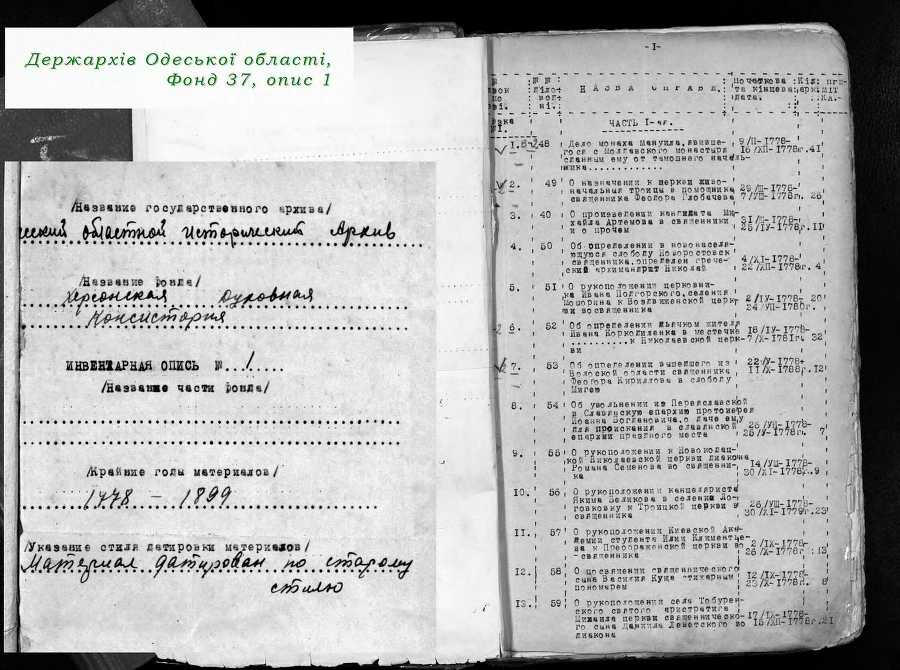 Держархів Одеської області,
Фонд 37, опис 1
/Название государственного архива/
областной исторический Архив
/Название фонда/
Херсонская духовная
консистория
ИНВЕНТАРНАЯ ОПИСЬ № 1
/Название части фонда/
/Крайние годы материалов/
1778 – 1899
/Указание стиля датировки материалов/
Материал датирован по старому
стилю
-I-
НАЗВА СПРАВИ.
Початкова
та кінцева
дата.
ЧАСТЬ I-ая.
1. 48 Дело монаха Мануила, явивше-
гося с Молдавского монастыря
сланным ему от тамошнего началь-
ника
9/П-1778-
16/ХП-1778г. 41
2. 49 О назначении к церкви живо-
начальныя троицы в помощника
священника Феодора Глобачева
29/Ш-1778-
7/УШ-1778г. 26
3. 40 О произведении кандидата Ми-
хайла Артемова в священники
и о прочем
31/Ш-1778-
25/IУ-1778г. 11
4. 50 Об определении в новонаселя-
ющуюся слободу Новоростовск
священника. определен грече-
ский архимандрит Николай
4/ХI-1778-
22/ХП-1778г. 4
5. 51 О рукоположении церковни-
ка Ивана Подгорского, селения
Моторина к Воздвиженской церк-
ви во священника
2/IУ-1778-
24/УП-1780г. 20
6. 52 Об определении дьячком жителя
Ивана Коркодиленка в местечке
к Николаевской церк-
ви
18/IУ-1778-
7/Х-1781г. 32
7. 53 Об определении вышедшего из
Волоской области священника
Феодора Кириллова в слободу
Мигею
22/У-1778-
11/Х-1788г. 12
8. 54 Об увольнении из Переяславской
в Славянскую епархию протоиерея
Иоанна Богдановича, о даче ему
для приискания в славянской
епархии празного места
28/УП-1778-
7
9. 55 О рукоположении к Новокодац-
кой Николаевской церкви диакона
Романа Семенова во священни-
ка
14/УШ-1778-
30/ХI-1778г. 9
10. 56 О рукоположении канцеляриста
Якима Великова в селении Ло-
говковку к Троицкой церкви в
священника
28/УШ-1778-
30/ХI-1779г. 23
11. 57 О рукоположении Киевской Ака-
демии студента Илии Климентие-
ва к Преображенской церкви во
священника
2/IХ-1778-
26/Х-1778г. 13
12. 58 О посвящении священнического
сына Василия Куща стихарным
пономарем
12/IХ-1778-
23/Х-1778г. 8
13. 59 О рукоположении села Тобурен-
ского святого аристратига
Михаила церкви священническо-
го сына Даниила Леватского во
диакона
17/IХ-1778-
15/ХП-1778г. 21